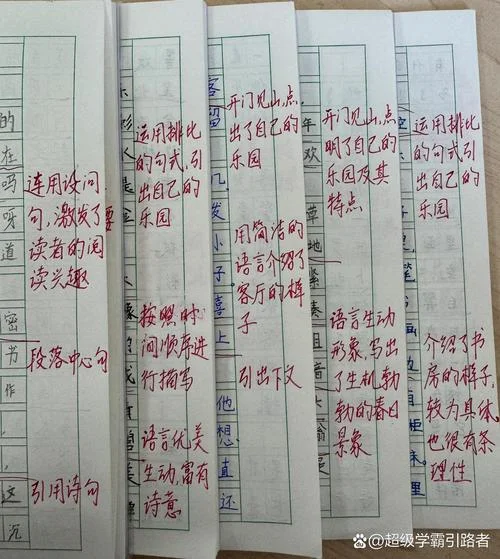 的
在
吗
呀
道
密
书
作
，
文
沉
连用设问
句，激发了要
读者的阅
读兴趣
段落中心句
引用诗句
运用排比
的句式，引
出自己的
乐园
按照时
间顺序进
行描写
语言优美
生动，富有
诗意
客
留
几
发
小
子
喜
上
他
想
直
还
开门见山，点
出了自己的
乐园
用简洁的
语言介绍了
客厅的样
子
引出下文
年
欢
草
地
紧
凑
开门见山，点
明了自己的
乐园及其
特点
语言生动
形象，写出
了生机勃
勃的春日
景象
运用排比
的句式，引
出自己的
乐园
介绍了书
房的样子，
较为具体
也很有条
理性
里
头条 @超级学霸引路者